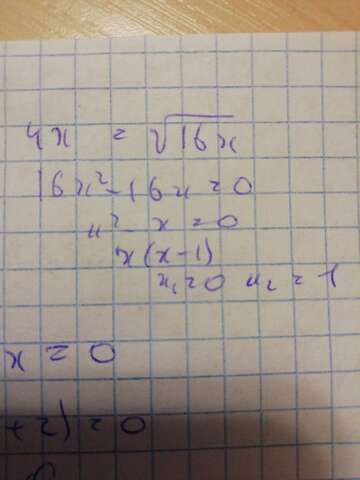 4x = √16x
16x² - 16x = 0
x² - x = 0
x(x-1)
x₁ = 0 x₂ = 1
x = 0
+2) = 0